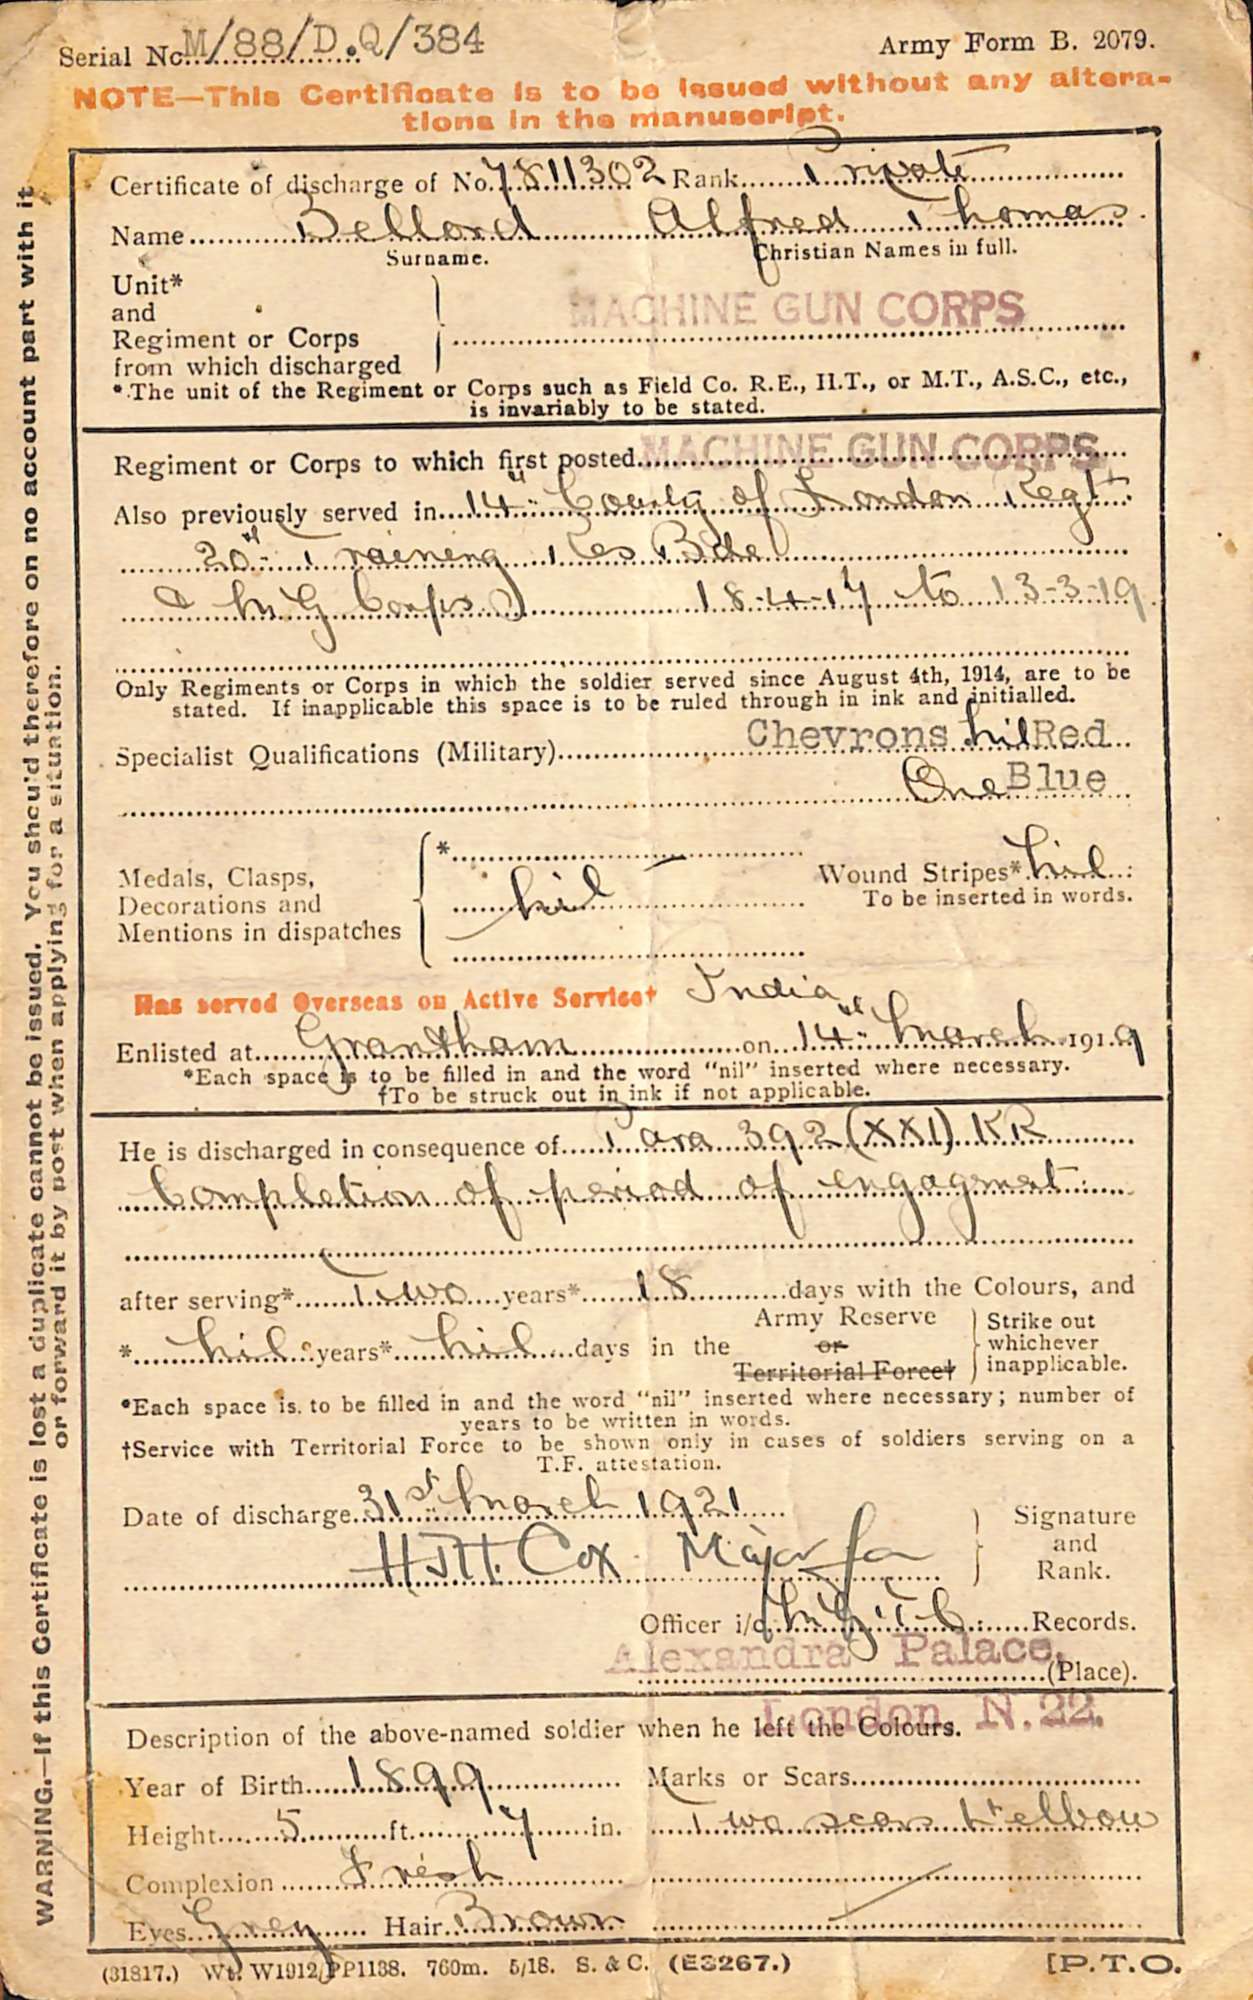 Serial No. M/88/D.Q/384 Army Form B. 2079.
NOTE—This Certificate is to be issued without any altera-
tions in the manuscript.
Certificate of discharge of No. 7811302 Rank Private
Name Bellord Alfred Thomas.
Surname. Christian Names in full.
Unit*
and
Regiment or Corps
from which discharged
MACHINE GUN CORPS
* The unit of the Regiment or Corps such as Field Co. R.E., H.T., or M.T., A.S.C., etc.,
is invariably to be stated.
Regiment or Corps to which first posted MACHINE GUN CORPS
Also previously served in 14th County of London Regt.
20th Training Res Bde
& M G Corps 18-4-17 to 13-3-19
Only Regiments or Corps in which the soldier served since August 4th, 1914, are to be
stated. If inapplicable this space is to be ruled through in ink and initialled.
Specialist Qualifications (Military) Chevrons Nil Red
One Blue
Medals, Clasps,
Decorations and
Mentions in dispatches
*
Nil
Wound Stripes* Nil
To be inserted in words.
Has served Overseas on Active Service† India
Enlisted at Grantham on 14th March 1919
*Each space is to be filled in and the word "nil" inserted where necessary.
†To be struck out in ink if not applicable.
He is discharged in consequence of Para 392 (XXI) KR
Completion of period of engagment
after serving* Two years* 18 days with the Colours, and
* Nil years* Nil days in the Army Reserve
or
Territorial Force†
Strike out
whichever
inapplicable.
*Each space is to be filled in and the word "nil" inserted where necessary; number of
years to be written in words.
†Service with Territorial Force to be shown only in cases of soldiers serving on a
T.F. attestation.
Date of discharge 31st March 1921
Cox Major for
Signature
and
Rank.
Officer i/c Records.
Alexandra Palace, (Place).
London N.22.
Description of the above-named soldier when he left the Colours.
Year of Birth 1899 Marks or Scars
Height 5 ft. 7 in. Two scars Rt elbow
Complexion Fresh
Eyes Grey Hair Brown
(31817.) Wt. W1912/PP1138. 760m. 5/18. S. & C. (E3267.) [P.T.O.
WARNING.—If this Certificate is lost a duplicate cannot be issued. You should therefore on no account part with it
or forward it by post when applying for a situation.